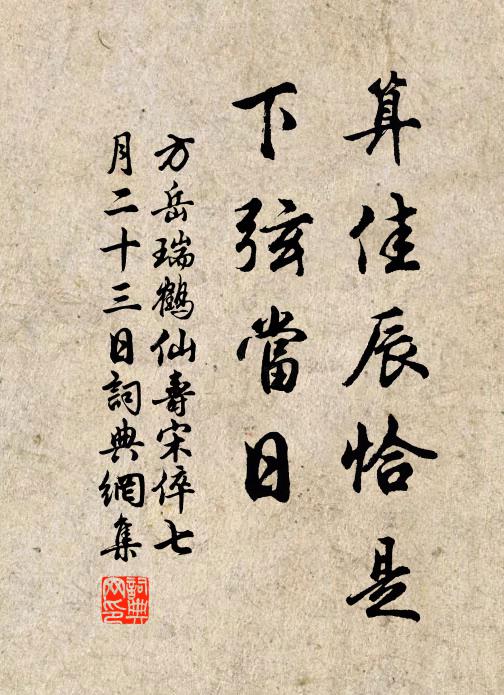 算佳辰恰是
下弦當日
方岳瑞鶴仙壽宋倅七
月二十三日詞典網集
詞典網印